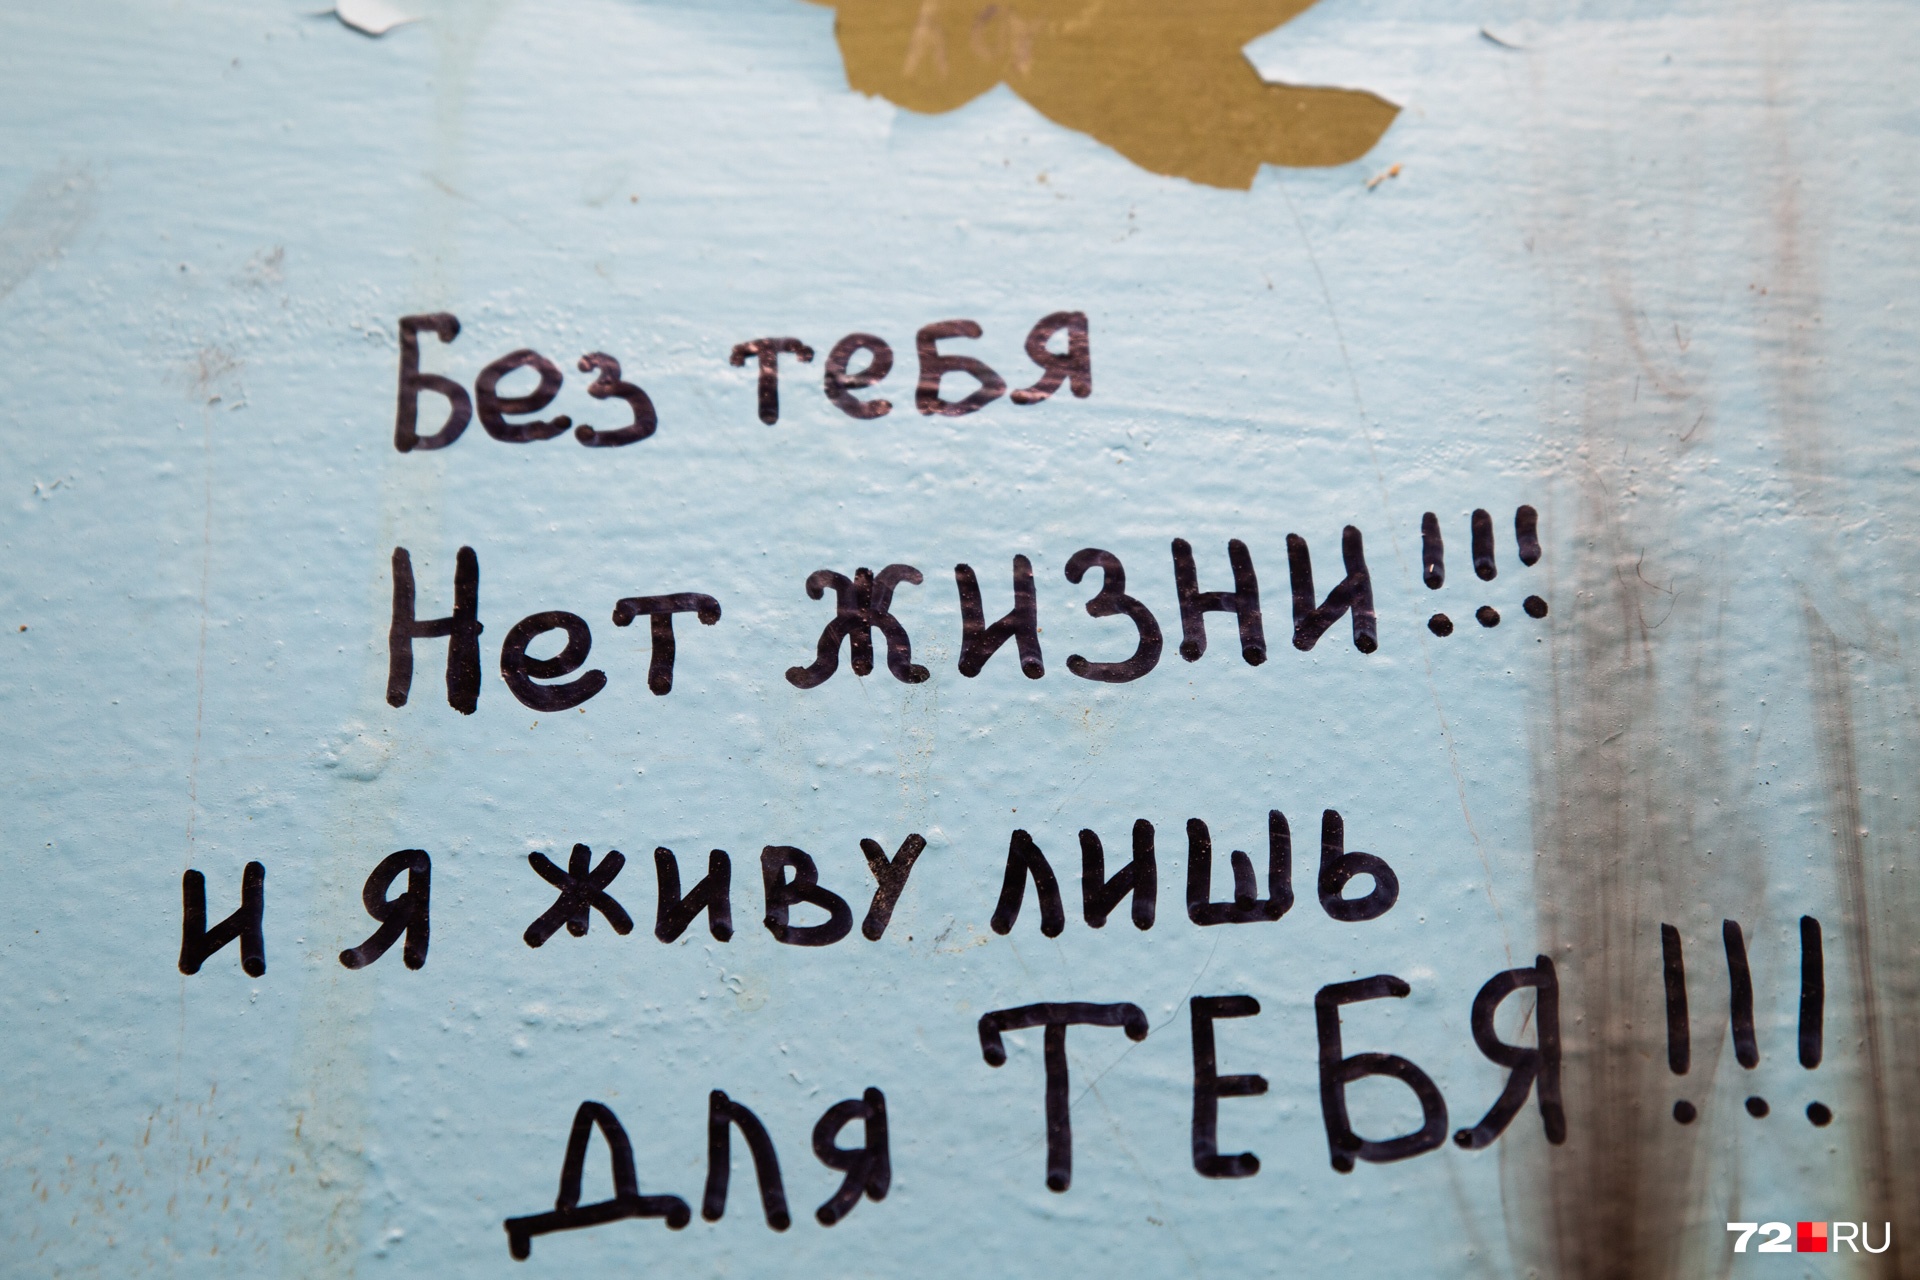 Без тебя
Нет жизни!!!
и я живу лишь
для ТЕБЯ!!!
72 RU